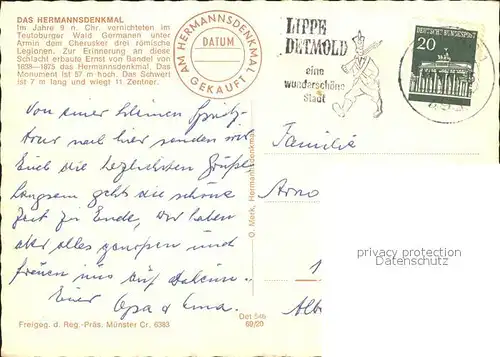 DAS HERMANNSDENKMAL
Im Jahre 9 n. Chr. vernichteten im
Teutoburger Wald Germanen unter
Armin dem Cherusker drei römische
Legionen. Zur Erinnerung an diese
Schlacht erbaute Ernst von Bandel von
1838—1875 das Hermannsdenkmal. Das
Monument ist 57 m hoch. Das Schwert
ist 7 m lang und wiegt 11 Zentner.
AM HERMANNSDENKMAL
DATUM
GEKAUFT
LIPPE
DETMOLD
eine
wunderschöne
Stadt
DEUTSCHE BUNDESPOST
20
Von einer kleinen Spritz-
tour nach hier senden wir
Euch die herzlichsten Grüße
Langsam geht die schöne
Zeit zu Ende, wir haben
aber alles genossen und
freuen uns auf daheim.
Euer Opa & Oma.
Familie
Arno
1
Alb
privacy protection
Datenschutz
O. Merk, Hermannsdenkmal
Freigeg. d. Reg.-Präs. Münster Cr. 6383
Det 54b
69/20